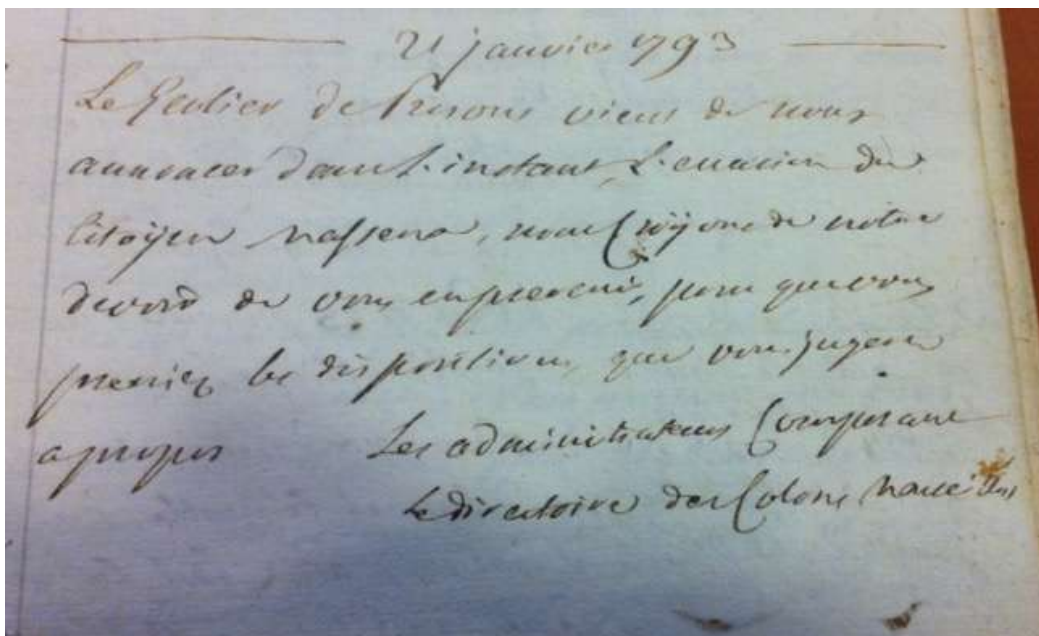 21 janvier 1793
Le Geolier de Prisons viens de nous
annoncer dans l'instant, L'evasion du
Citoÿen Massena, nous Croÿons de notre
devoir de vous en prevenir, pour que vous
preniez les dispositions, que vous jugerez
a propos Les administrateurs Composant
Le directoire des Colons